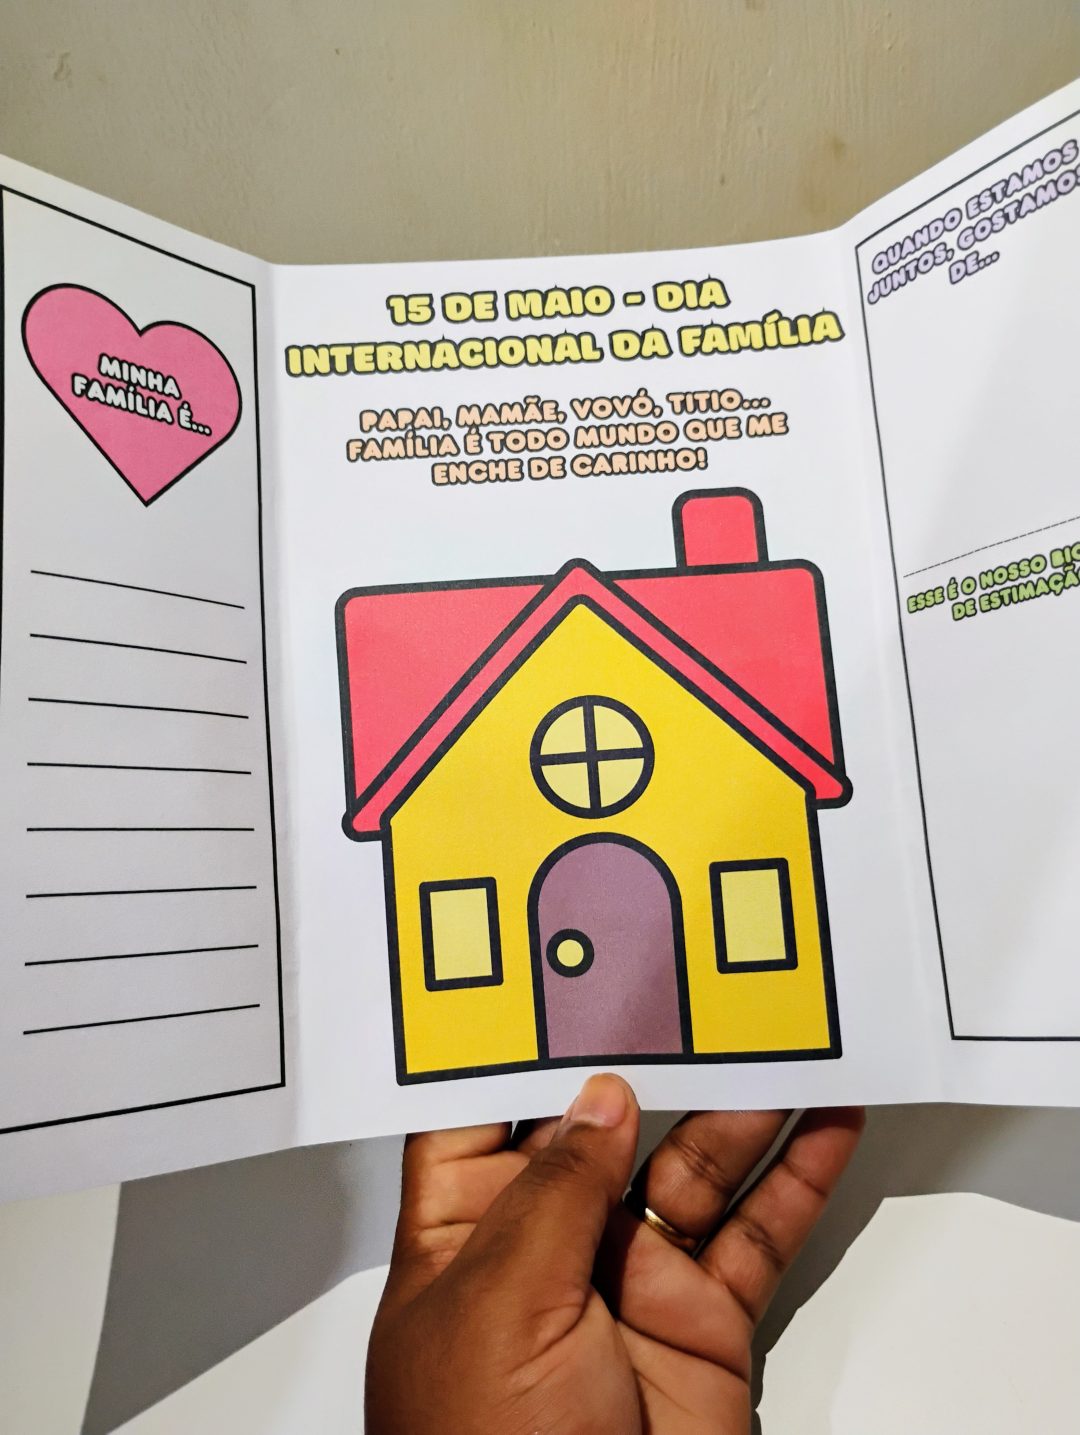 MINHA
FAMÍLIA É...
15 DE MAIO - DIA
INTERNACIONAL DA FAMÍLIA
PAPAI, MAMÃE, VOVÓ, TITIO...
FAMÍLIA É TODO MUNDO QUE ME
ENCHE DE CARINHO!
QUANDO ESTAMOS
JUNTOS, GOSTAMOS
DE...
ESSE É O NOSSO
DE ESTIMAÇÃO